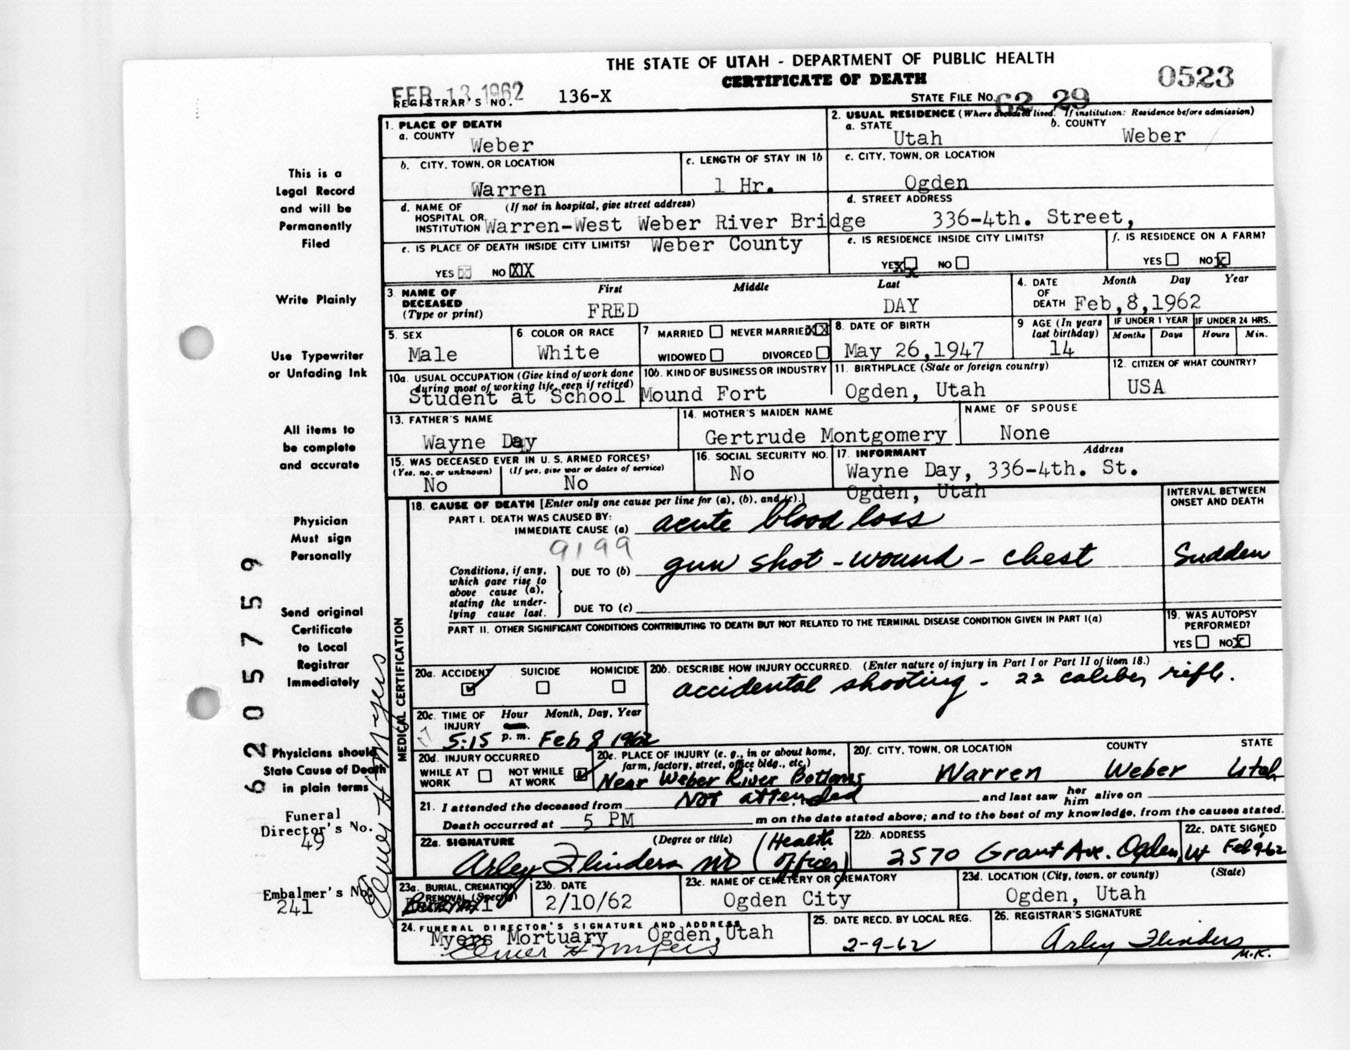 THE STATE OF UTAH - DEPARTMENT OF PUBLIC HEALTH
CERTIFICATE OF DEATH
0523
FEB 13 1962
REGISTRAR'S NO. 136-X
STATE FILE NO. 62 29
This is a
Legal Record
and will be
Permanently
Filed
Write Plainly
Use Typewriter
or Unfading Ink
All items to
be complete
and accurate
Physician
Must sign
Personally
Send original
Certificate
to Local
Registrar
Immediately
Physicians should
State Cause of Death
in plain terms
Funeral
Director's No.
49
Embalmer's No.
241
6205759
Elmer H Myers
1. PLACE OF DEATH
a. COUNTY
Weber
2. USUAL RESIDENCE (Where deceased lived. If institution: Residence before admission)
a. STATE
Utah
b. COUNTY
Weber
b. CITY, TOWN, OR LOCATION
Warren
c. LENGTH OF STAY IN 1b
1 Hr.
c. CITY, TOWN, OR LOCATION
Ogden
d. NAME OF (If not in hospital, give street address)
HOSPITAL OR
INSTITUTION Warren-West Weber River Bridge
d. STREET ADDRESS
336-4th. Street,
e. IS PLACE OF DEATH INSIDE CITY LIMITS? Weber County
YES NO XX
e. IS RESIDENCE INSIDE CITY LIMITS?
YES X NO
f. IS RESIDENCE ON A FARM?
YES NO X
3. NAME OF
DECEASED
(Type or print)
First Middle Last
FRED DAY
4. DATE
OF
DEATH
Month Day Year
Feb,8,1962
5. SEX
Male
6. COLOR OR RACE
White
7 MARRIED NEVER MARRIED XX
WIDOWED DIVORCED
8. DATE OF BIRTH
May 26,1947
9 AGE (In years
last birthday)
14
IF UNDER 1 YEAR
Months Days
IF UNDER 24 HRS.
Hours Min.
10a. USUAL OCCUPATION (Give kind of work done
during most of working life, even if retired)
Student at School
10b. KIND OF BUSINESS OR INDUSTRY
Mound Fort
11. BIRTHPLACE (State or foreign country)
Ogden, Utah
12. CITIZEN OF WHAT COUNTRY?
USA
13. FATHER'S NAME
Wayne Day
14. MOTHER'S MAIDEN NAME
Gertrude Montgomery
NAME OF SPOUSE
None
15. WAS DECEASED EVER IN U. S. ARMED FORCES?
(Yes, no, or unknown) (If yes, give war or dates of service)
No No
16. SOCIAL SECURITY NO.
No
17. INFORMANT Address
Wayne Day, 336-4th. St.
Ogden, Utah
MEDICAL CERTIFICATION
18. CAUSE OF DEATH [Enter only one cause per line for (a), (b), and (c).]
INTERVAL BETWEEN
ONSET AND DEATH
PART I. DEATH WAS CAUSED BY:
IMMEDIATE CAUSE (a) acute blood loss
9199
Conditions, if any,
which gave rise to
above cause (a),
stating the under-
lying cause last.
DUE TO (b) gun shot - wound - chest
Sudden
DUE TO (c)
PART II. OTHER SIGNIFICANT CONDITIONS CONTRIBUTING TO DEATH BUT NOT RELATED TO THE TERMINAL DISEASE CONDITION GIVEN IN PART I(a)
19. WAS AUTOPSY
PERFORMED?
YES NO X
20a. ACCIDENT SUICIDE HOMICIDE
20b. DESCRIBE HOW INJURY OCCURRED. (Enter nature of injury in Part I or Part II of item 18.)
accidental shooting - 22 caliber rifle.
20c. TIME OF
INJURY
Hour Month, Day, Year
5:15 p.m. Feb 8 1962
20d. INJURY OCCURRED
WHILE AT
WORK
NOT WHILE
AT WORK
20e. PLACE OF INJURY (e. g., in or about home,
farm, factory, street, office bldg., etc.)
Near Weber River Bottoms
20f. CITY, TOWN, OR LOCATION COUNTY STATE
Warren Weber Utah
21. I attended the deceased from Not attended and last saw her him alive on
Death occurred at 5 PM m on the date stated above; and to the best of my knowledge, from the causes stated.
22a. SIGNATURE (Degree or title)
Arley Flinders MD (Health Officer)
22b. ADDRESS
2570 Grant Ave. Ogden, Ut
22c. DATE SIGNED
Feb 9-62
23a. BURIAL, CREMATION,
REMOVAL (Specify)
Burial
23b. DATE
2/10/62
23c. NAME OF CEMETERY OR CREMATORY
Ogden City
23d. LOCATION (City, town, or county) (State)
Ogden, Utah
24. FUNERAL DIRECTOR'S SIGNATURE AND ADDRESS
Myers Mortuary Ogden, Utah
Elmer H Myers
25. DATE RECD. BY LOCAL REG.
2-9-62
26. REGISTRAR'S SIGNATURE
Arley Flinders
M.K.